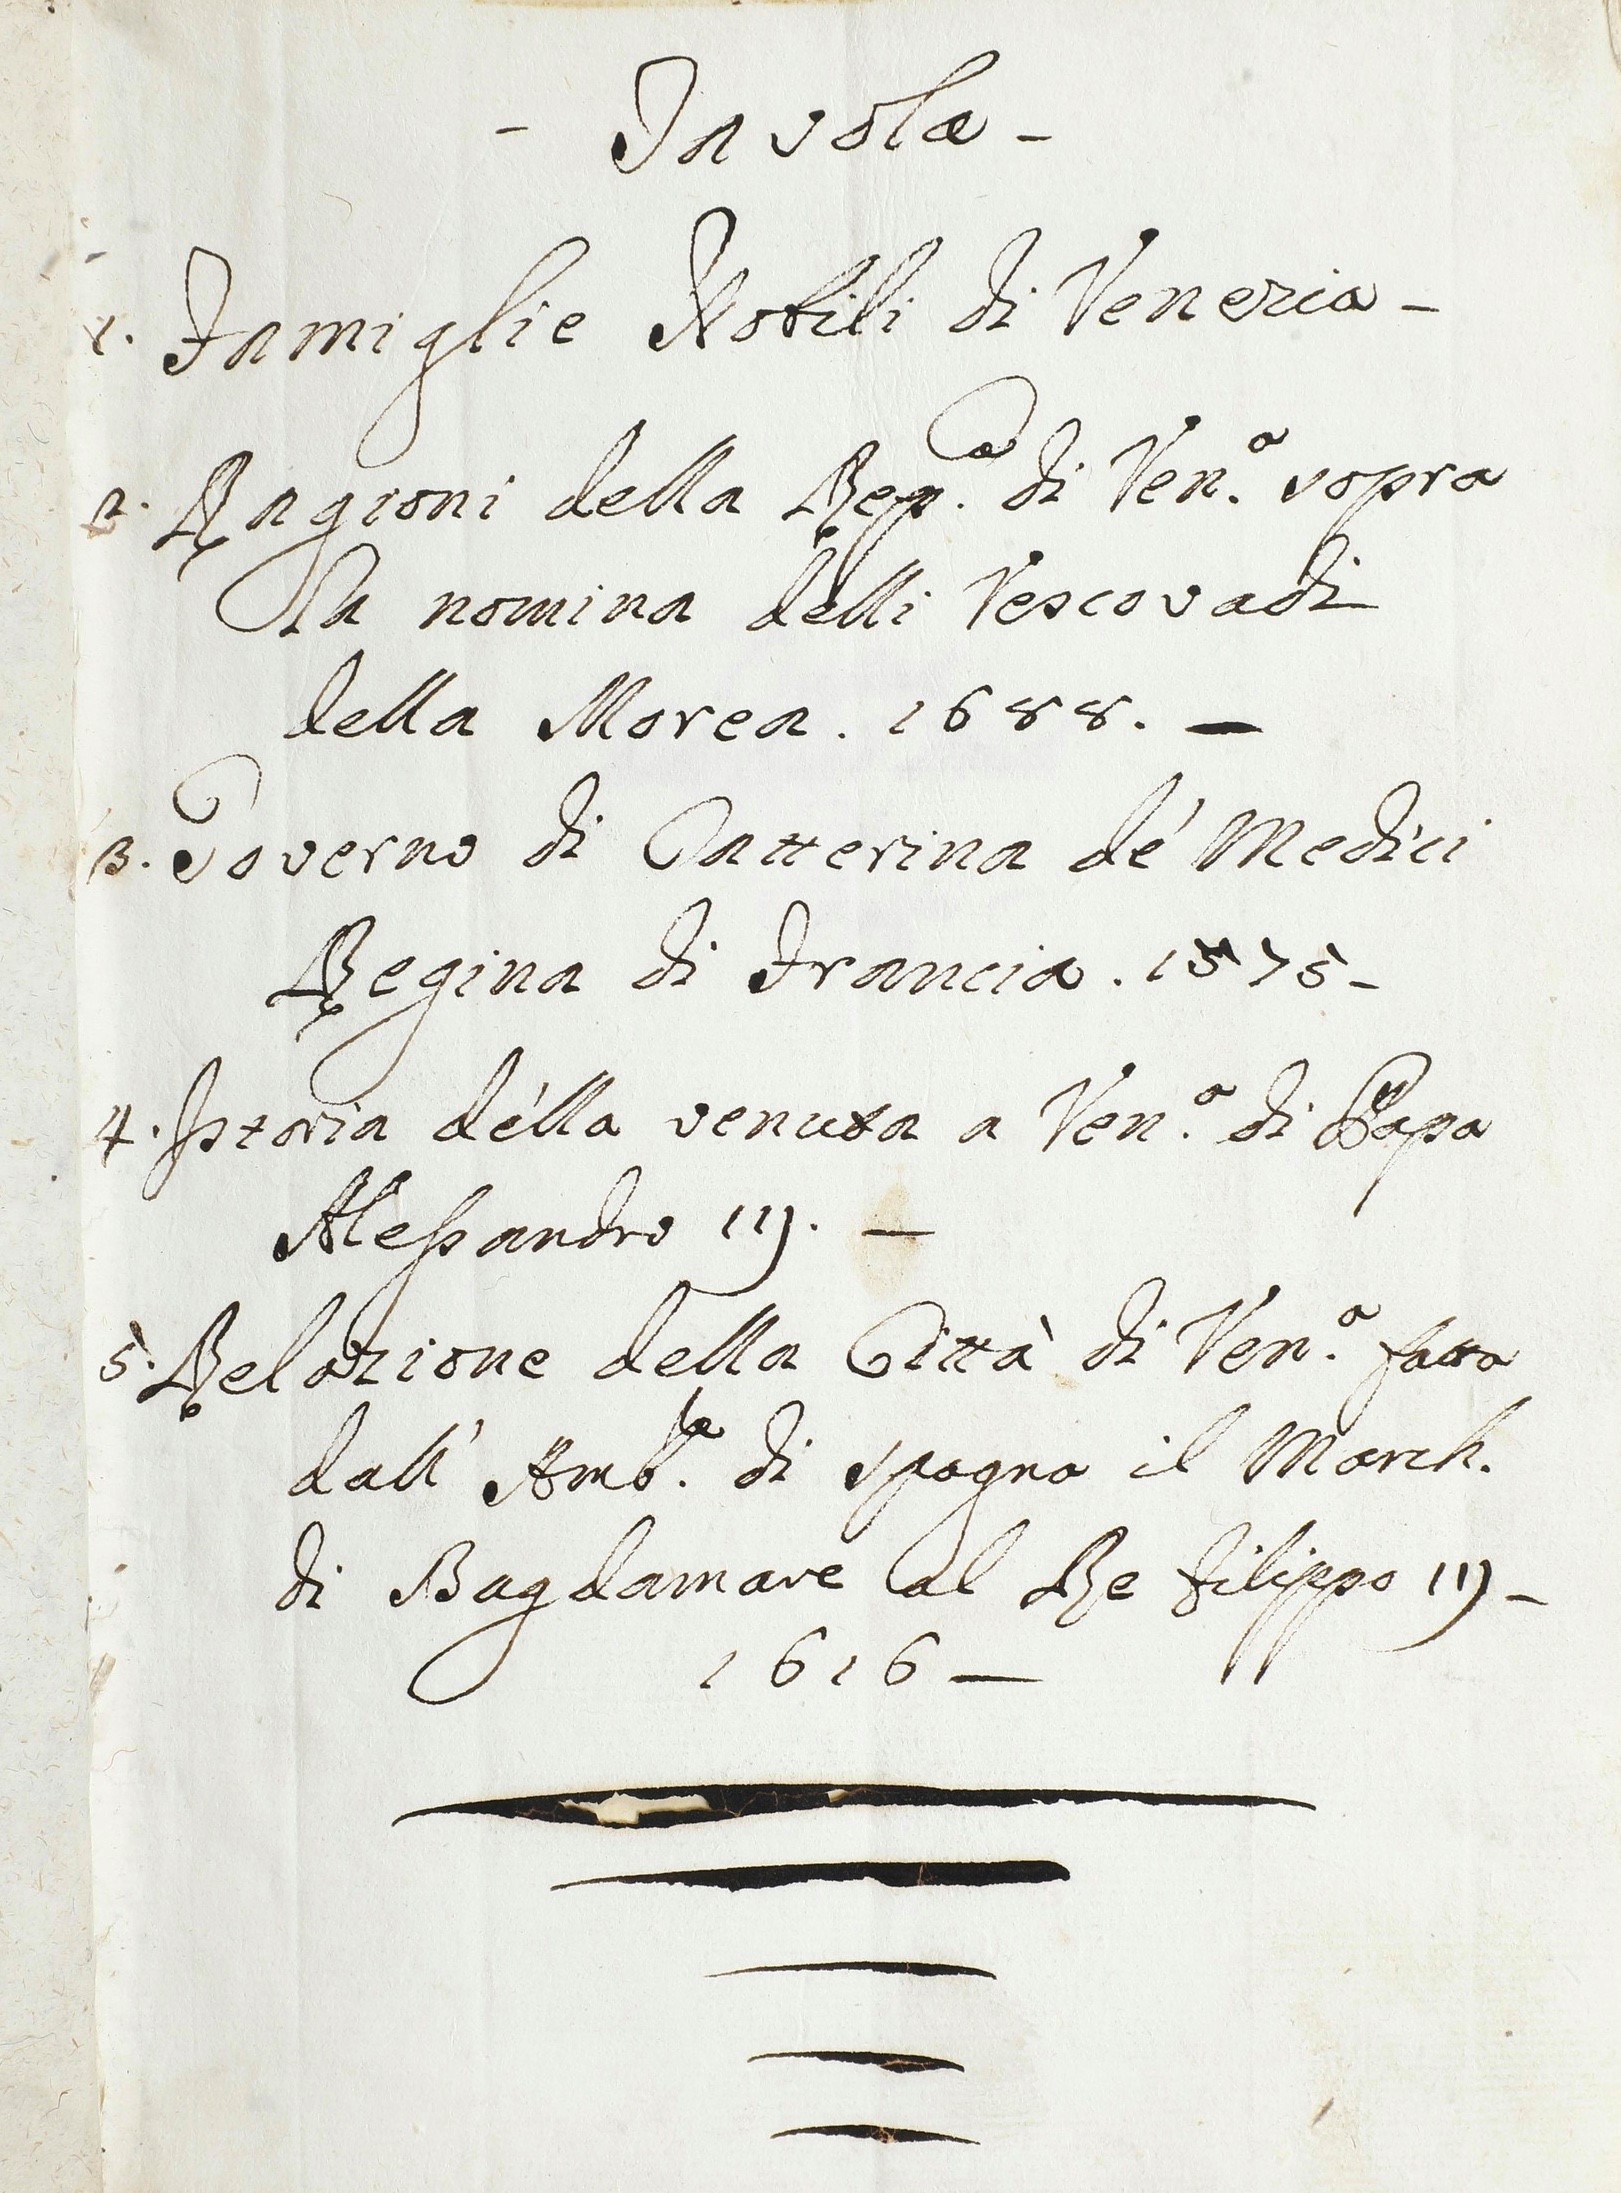 - Tavola -
1. Famiglie Nobili di Venezia -
2. Ragioni della Rep.ca di Ven.a sopra
la nomina delli Vescovadi
della Morea. 1688. —
3. Governo di Catterina de' Medici
Regina di Francia. 1575 -
4. Istoria della venuta a Ven.a di Papa
Alessandro III. —
5. Relazione della Città di Ven.a fatta
dall' Amb.re di Spagna il March.
di Bagdamare al Re Filippo III -
1616 —